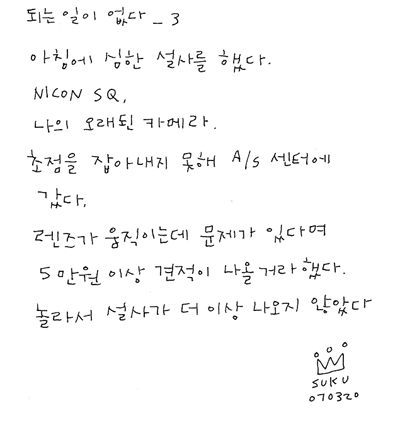 되는 일이 없다 _ 3
아침에 심한 설사를 했다.
NICON SQ,
나의 오래된 카메라.
초점을 잡아내지 못해 A/S 센터에
갔다.
렌즈가 움직이는데 문제가 있다며
5만원 이상 견적이 나올거라 했다.
놀라서 설사가 더 이상 나오지 않았다
SUKU
070320